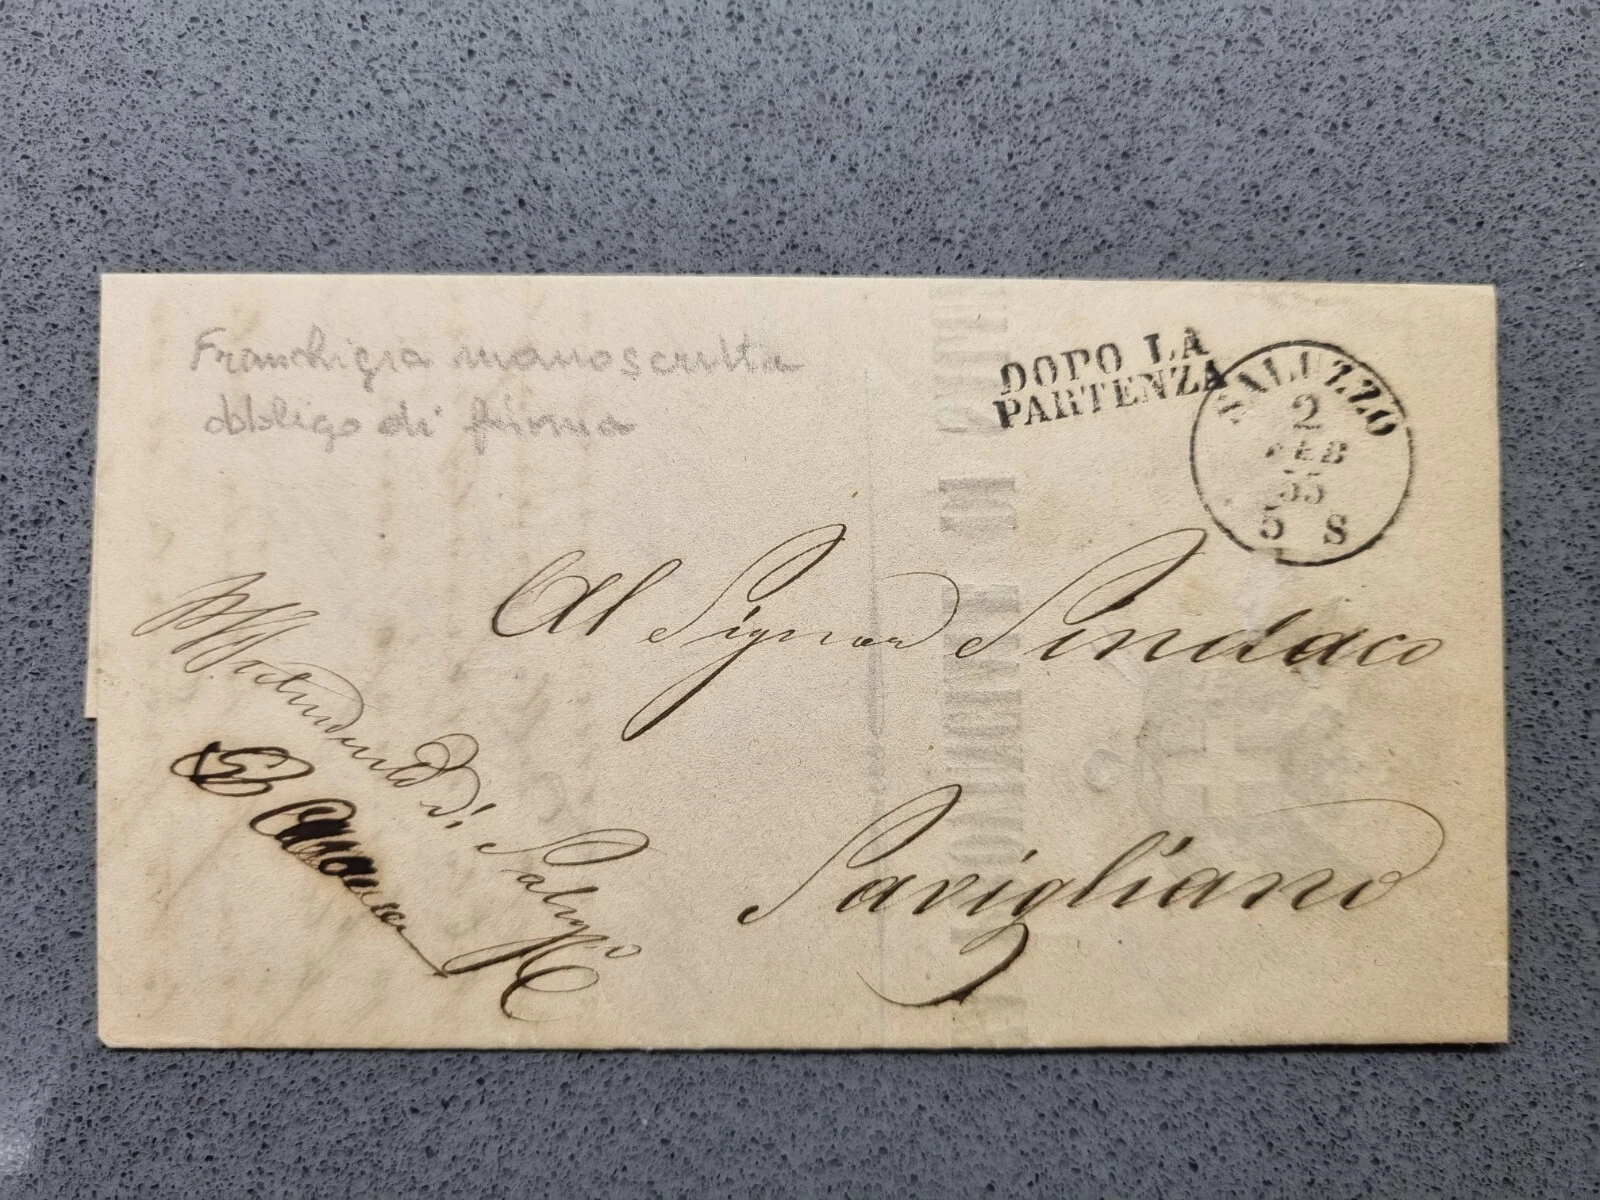 Franchigia manoscritta
obbligo di firma
DOPO LA
PARTENZA
SALUZZO
2
FEB
55
5 S
Al Signor Sindaco
Savigliano
di Saluzzo